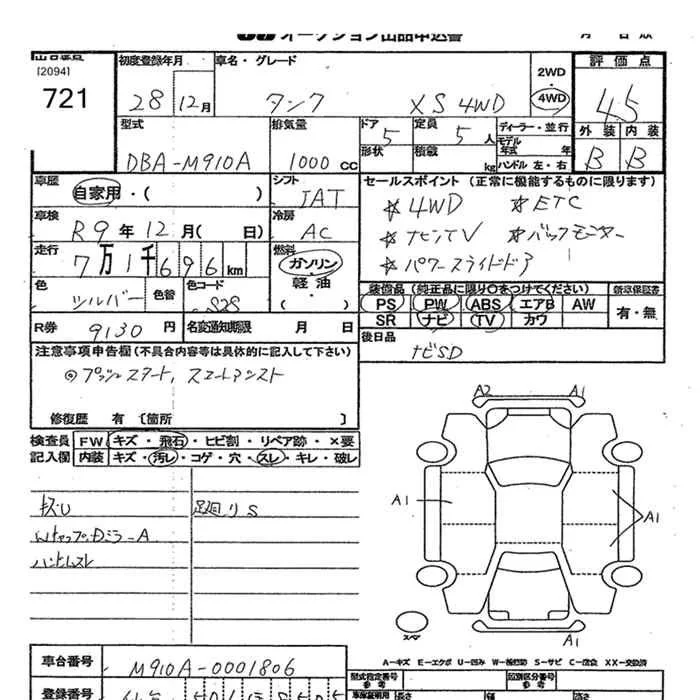 オークション出品申込書
[2094]
721
初度登録年月
28 12月
車名・グレード
タンク XS 4WD
2WD
4WD
評価点
4.5
外装 内装
B B
型式
DBA-M910A
排気量
1000 cc
ドア 5
形状
定員 5 人
積載 kg
ディーラー・並行
モデル年式 年
ハンドル 左・右
車歴
自家用・( )
シフト
IAT
セールスポイント (正常に機能するものに限ります)
*4WD *ETC
*ナビTV *バックモニター
*パワースライドドア
車検
R9年12月( 日)
冷房
AC
走行
7万1千696km
燃料
ガソリン・軽油・( )
色
シルバー
色替
色コード
S28
装備品 (純正品に限り○をつけてください)
PS PW ABS エアB AW
SR ナビ TV カワ
新車保証書
有・無
R券 9130円
名変通知期限 月 日
後日品
ナビSD
注意事項申告欄 (不具合内容等は具体的に記入して下さい)
◎プッシュスタート, スマートアシスト
修復歴 有 〔箇所 〕
検査員記入欄
FW キズ・飛石・ヒビ割・リペア跡・×要
内装 キズ・汚レ・コゲ・穴・スレ・キレ・破レ
キズU 足廻りS
A2 A1
A1 A1
A1
スペア
A-キズ E-エクボ U-凹み W-補修跡 S-サビ C-腐食 XX-交換済
車台番号
M910A-0001806
型式指定番号
類別区分番号
登録番号
長さ 幅 高さ